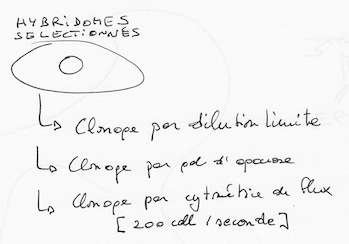 HYBRIDOMES
SELECTIONNÉS
↳ Clonage par dilution limite
↳ Clonage par gel d'agarose
↳ Clonage par cytométrie de flux
[200 cell / seconde]